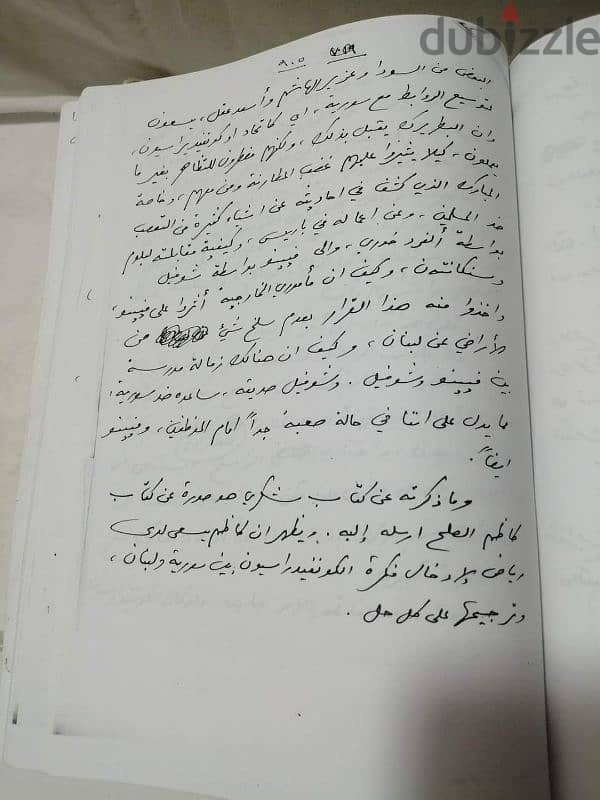 dubizzle
٨٠٥ ٧٨٩
البعض من السودا وعزيز الهاشم وأسعد عقل، يسعون
لتوسيع الروابط مع سورية، اي كاتحاد او كونفيديراسيون،
وان البطريرك يقبل بذلك، ولكنهم مضطرون للتظاهر بغير ما
يريدون، كيلا يثيروا عليهم غضب المطارنة ومن معهم، وخاصة
المبارك الذي كشف في احاديثه عن اشياء كثيرة من التعصب
ضد المسلمين، وعن اعماله في باريس، وكيفية مقابلته لبلوم
بواسطة ألفرد خوري، والى فيينو بواسطة شوفيل
وسنكانتون، وكيف ان مأموري الخارجية أثروا على فيينو،
واخذوا منه هذا القرار بعدم سلخ شيء من
الأراضي عن لبنان، وكيف ان هنالك زمالة مدرسة
بين فيينو وشوفيل. وشوفيل صديقه، ساعده ضد سورية،
مما يدل على اننا في حالة صعبة جداً امام الموظفين، وفيينو
ايضاً.
وما ذكرته عن كتاب شكري هو صورة عن كتاب
كاظم الصلح ارسله إليه. ويظهر ان كاظم يسعى لدى
رياض لإدخال فكرة الكونفيدراسيون بين سورية ولبنان،
وترجيحها على كل حل.